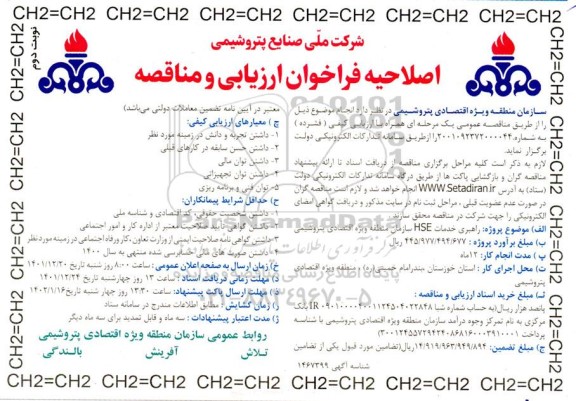 CH2=CH2 CH2=CH2 CH2=CH2 CH2=CH2 CH2=CH2 CH2=CH2
نوبت دوم
شرکت ملّی صنایع پتروشیمی
اصلاحیه فراخوان ارزیابی و مناقصه
سازمان منطقه ویژه اقتصادی پتروشیمی در نظر دارد انجام موضوع ذیل
را از طریق مناقصه عمومی یک مرحله ای همراه با ارزیابی کیفی ( فشرده )
به شماره ۲۰۰۱۰۹۲۳۷۲۰۰۰۰۴۴ از طریق سامانه تدارکات الکترونیکی دولت
برگزار نماید.
لازم به ذکر است کلیه مراحل برگزاری مناقصه از دریافت اسناد تا ارائه پیشنهاد
مناقصه گران و بازگشایی پاکت ها از طریق درگاه سامانه تدارکات الکترونیکی دولت
(ستاد) به آدرس WWW.Setadiran.ir انجام خواهد شد و لازم است مناقصه گران
در صورت عدم عضویت قبلی ، مراحل ثبت نام در سایت مذکور و دریافت گواهی امضای
الکترونیکی را جهت شرکت در مناقصه محقق سازند.
الف) موضوع پروژه: راهبری خدمات HSE سازمان منطقه ویژه اقتصادی پتروشیمی
ب) مبلغ برآورد پروژه : ۴۴۵/۹۷۷/۴۹۴/۶۷۷ ریال
پ) مدت انجام کار: ۱۲ماه
ت) محل اجرای کار : استان خوزستان بندر امام خمینی (ره) منطقه ویژه اقتصادی
پتروشیمی
ث) مبلغ خرید اسناد ارزیابی و مناقصه :
پانصد هزار ریال(به حساب شماره شبا
مرکزی به نام تمرکز وجوه درآمد سازمان منطقه ویژه اقتصادی پتروشیمی با شناسه
پرداخت
ج) مبلغ تضمین: ۱۴/۹۱۹/۹۶۳/۹۴۹/۸۹۴ ریال(تضامین مورد قبول یکی از تضامین
شناسه آگهی ۱۴۶۷۳۹۹
معتبر در آیین نامه تضمین معاملات دولتی می‌باشد)
چ ) معیارهای ارزیابی کیفی:
۱- داشتن تجربه و دانش در زمینه مورد نظر
۲- داشتن حسن سابقه در کارهای قبلی
۳- داشتن توان مالی
۴- داشتن توان تجهیزاتی
۵- توان فنی و برنامه ریزی
ح) حداقل شرایط پیمانکاران:
۱- داشتن شخصیت حقوقی، کد اقتصادی و شناسه ملی
۲- داشتن گواهی تایید صلاحیت معتبر از اداره کار و امور اجتماعی
۳- داشتن گواهی نامه صلاحیت ایمنی از وزارت تعاون، کار و رفاه اجتماعی در زمینه مورد نظر
۴- داشتن صورت های مالی حسابرسی شده منتهی به سال ۱۴۰۰
خ) زمان ارسال به صفحه اعلان عمومی : ساعت ۸:۰۰ روز شنبه تاریخ ۱۴۰۱/۱۲/۲۰
د) مهلت زمانی دریافت اسناد : ساعت ۱۳ روز چهارشنبه تاریخ ۱۴۰۱/۱۲/۲۴
ذ) مهلت ارسال پاکت پیشنهاد: ساعت ۱۳:۳۰ روز چهار شنبه تاریخ ۱۴۰۲/۱/۱۶
ر) زمان گشایش : مطابق اطلاعات مندرج در سامانه ستاد
ژ) مدت اعتبار پیشنهادات : سه ماه و قابل تمدید برای سه ماه دیگر
روابط عمومی سازمان منطقه ویژه اقتصادی پتروشیمی
تلاش آفرینش بالندگی
CH2=CH2 CH2=CH2 CH2=CH2 CH2=CH2 CH2=CH2 CH2=CH2